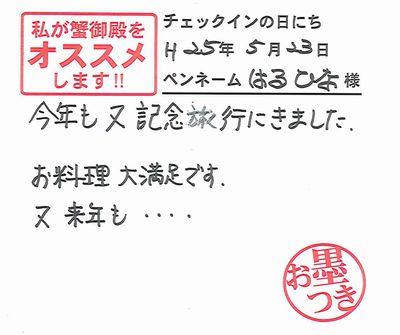 私が蟹御殿を
オススメ
します!!
チェックインの日にち
H 25年 5月 23日
ペンネーム はるひな 様
今年も又記念旅行にきました.
お料理大満足です.
又来年も・・・・
お墨つき